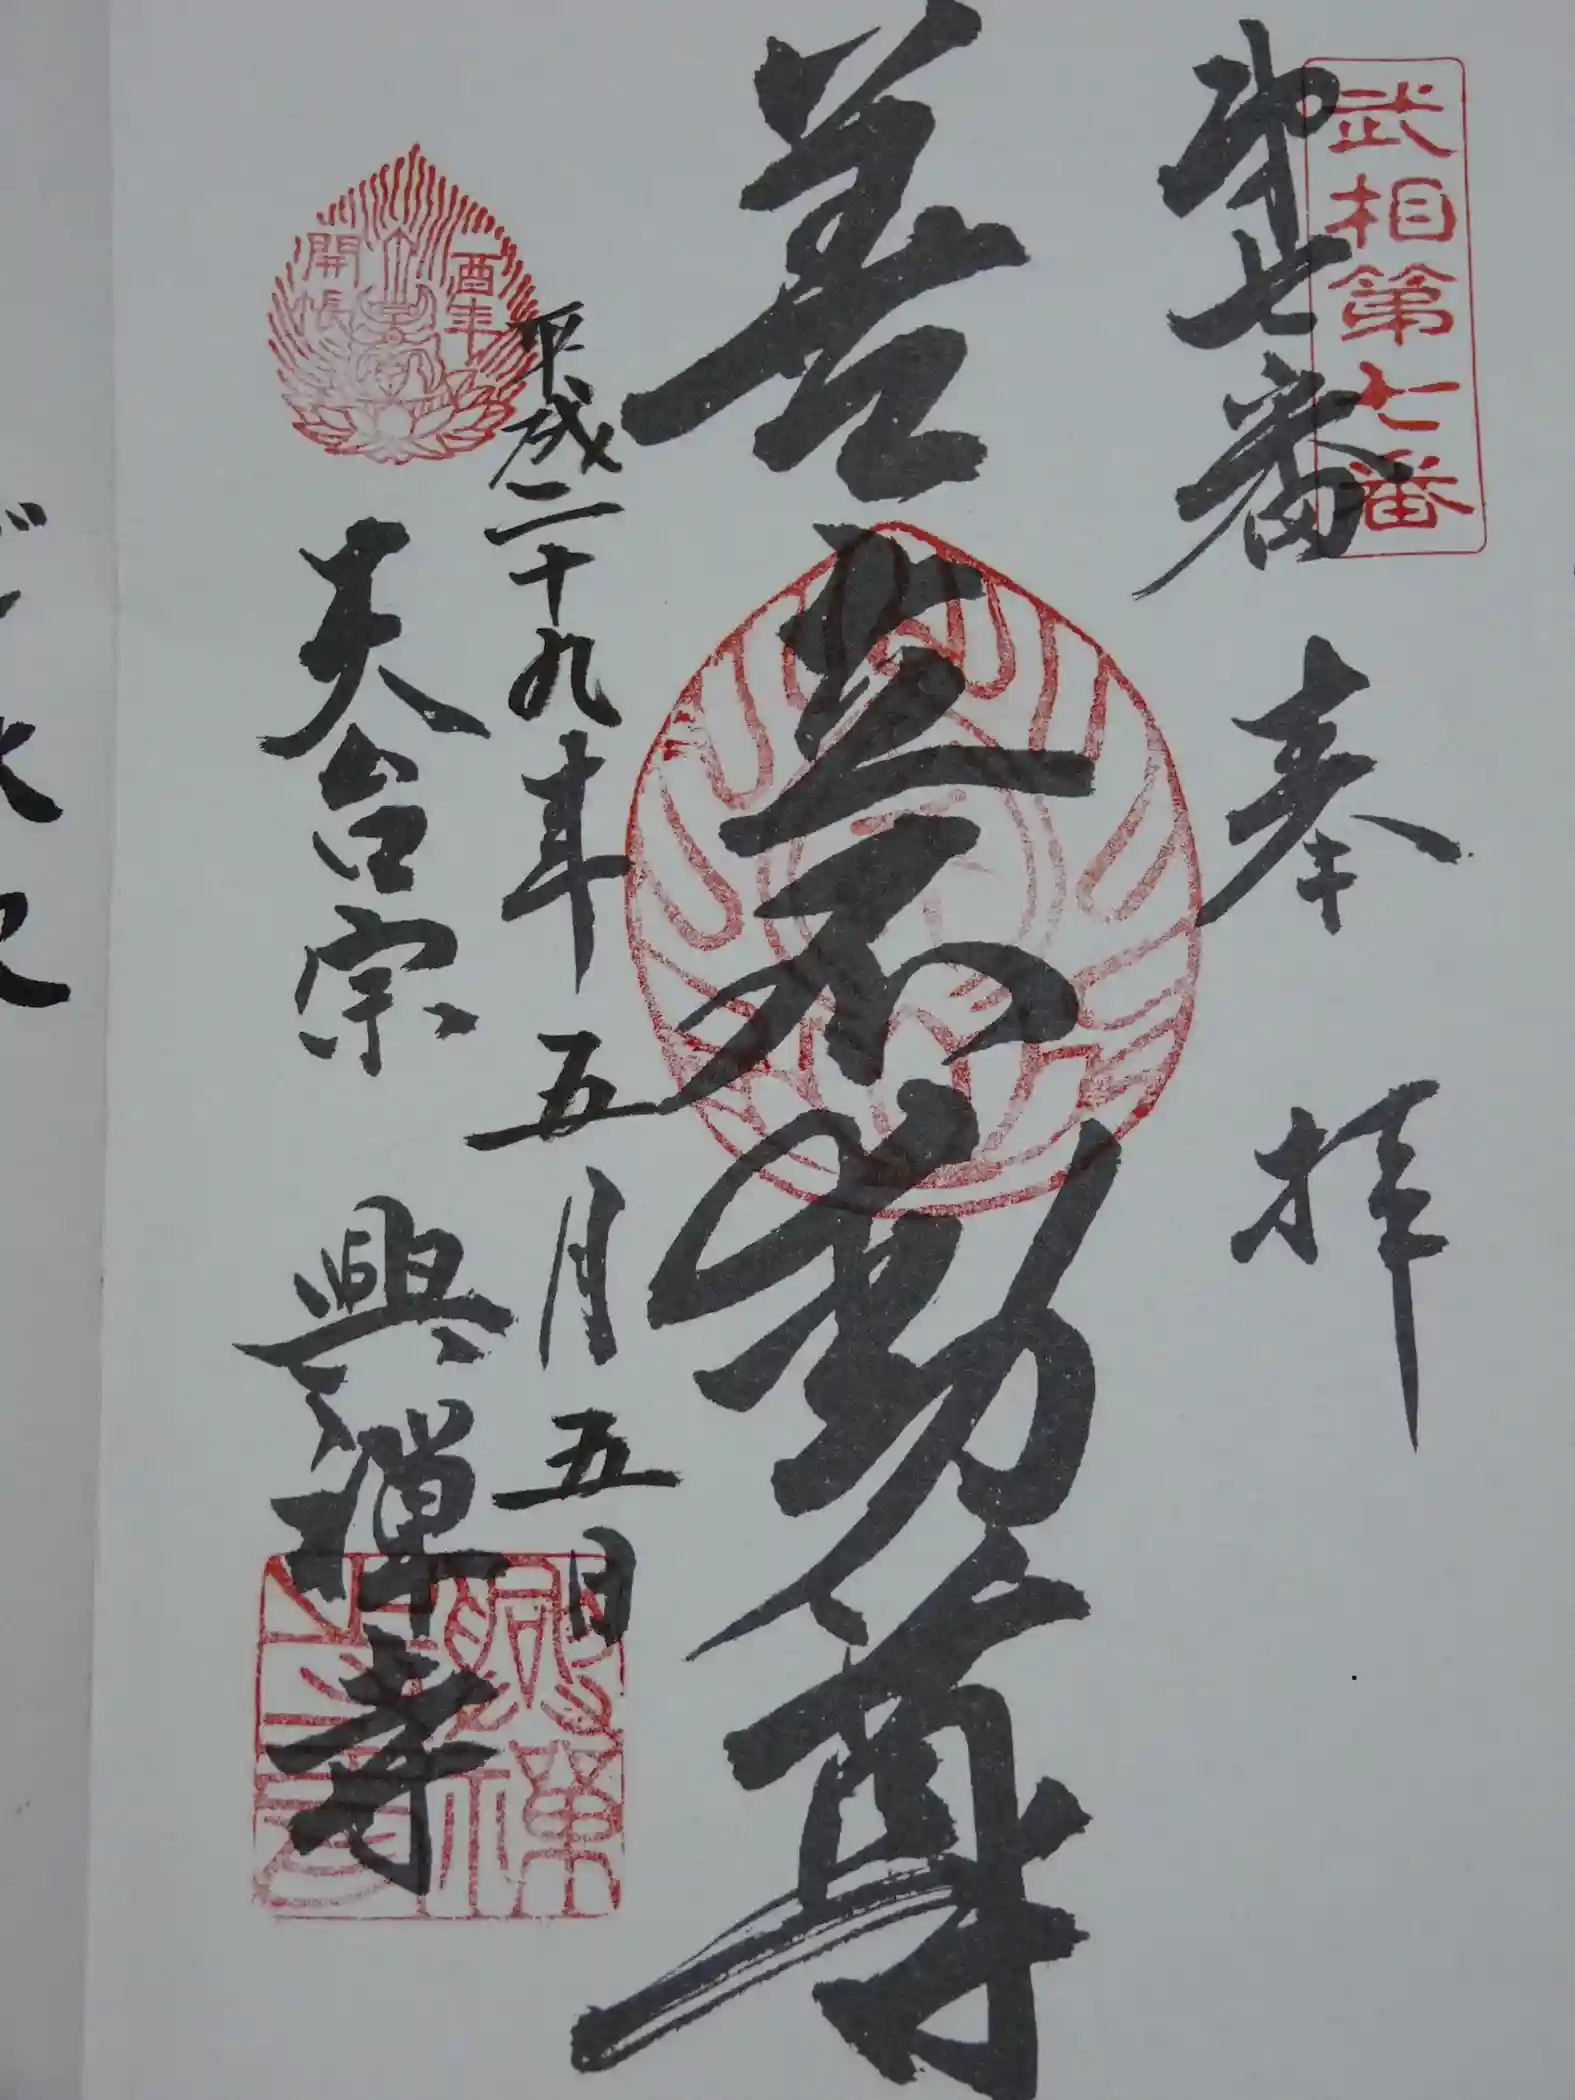 武相第七番
第七番 奉 拝
不動尊
平成二十九年 五月 五日
酉年
開帳
天台宗 興禅寺